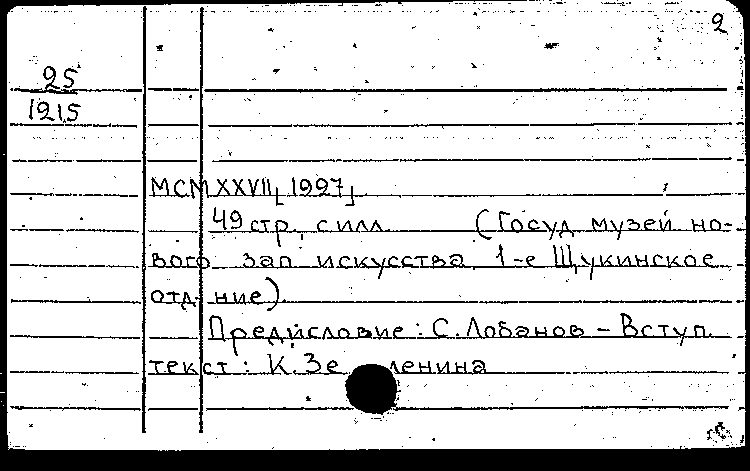 2
25
1215
MCMXXVII[1927]
49 стр. с илл. (Госуд музей но-
вого зап искусства 1-е Щукинское
отд-ние).
Предисловие: С. Лобанов – Вступ.
текст: К. Зеленина